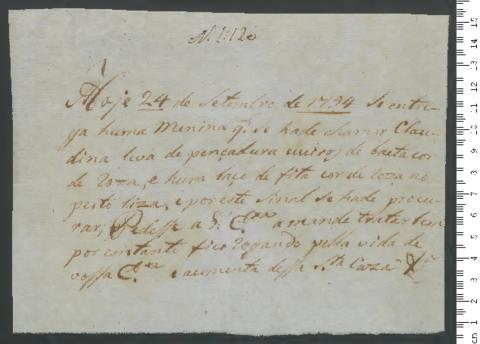 N. 1:120
Hoje 24 de Setembro de 1794 se entre-
ga huma Menina q. se hade chamar Clau-
dina leva de pençadura cueiros de baeta cor
de Roza, e hum laço de fita cor de Roza no
peito liza, e por este sinal se hade procu-
rar, Pedesse a V. Exa a mande tratar bem
por em tanto fico Rogando pella vida de
vossa Exa e aumento dessa Sta Caza